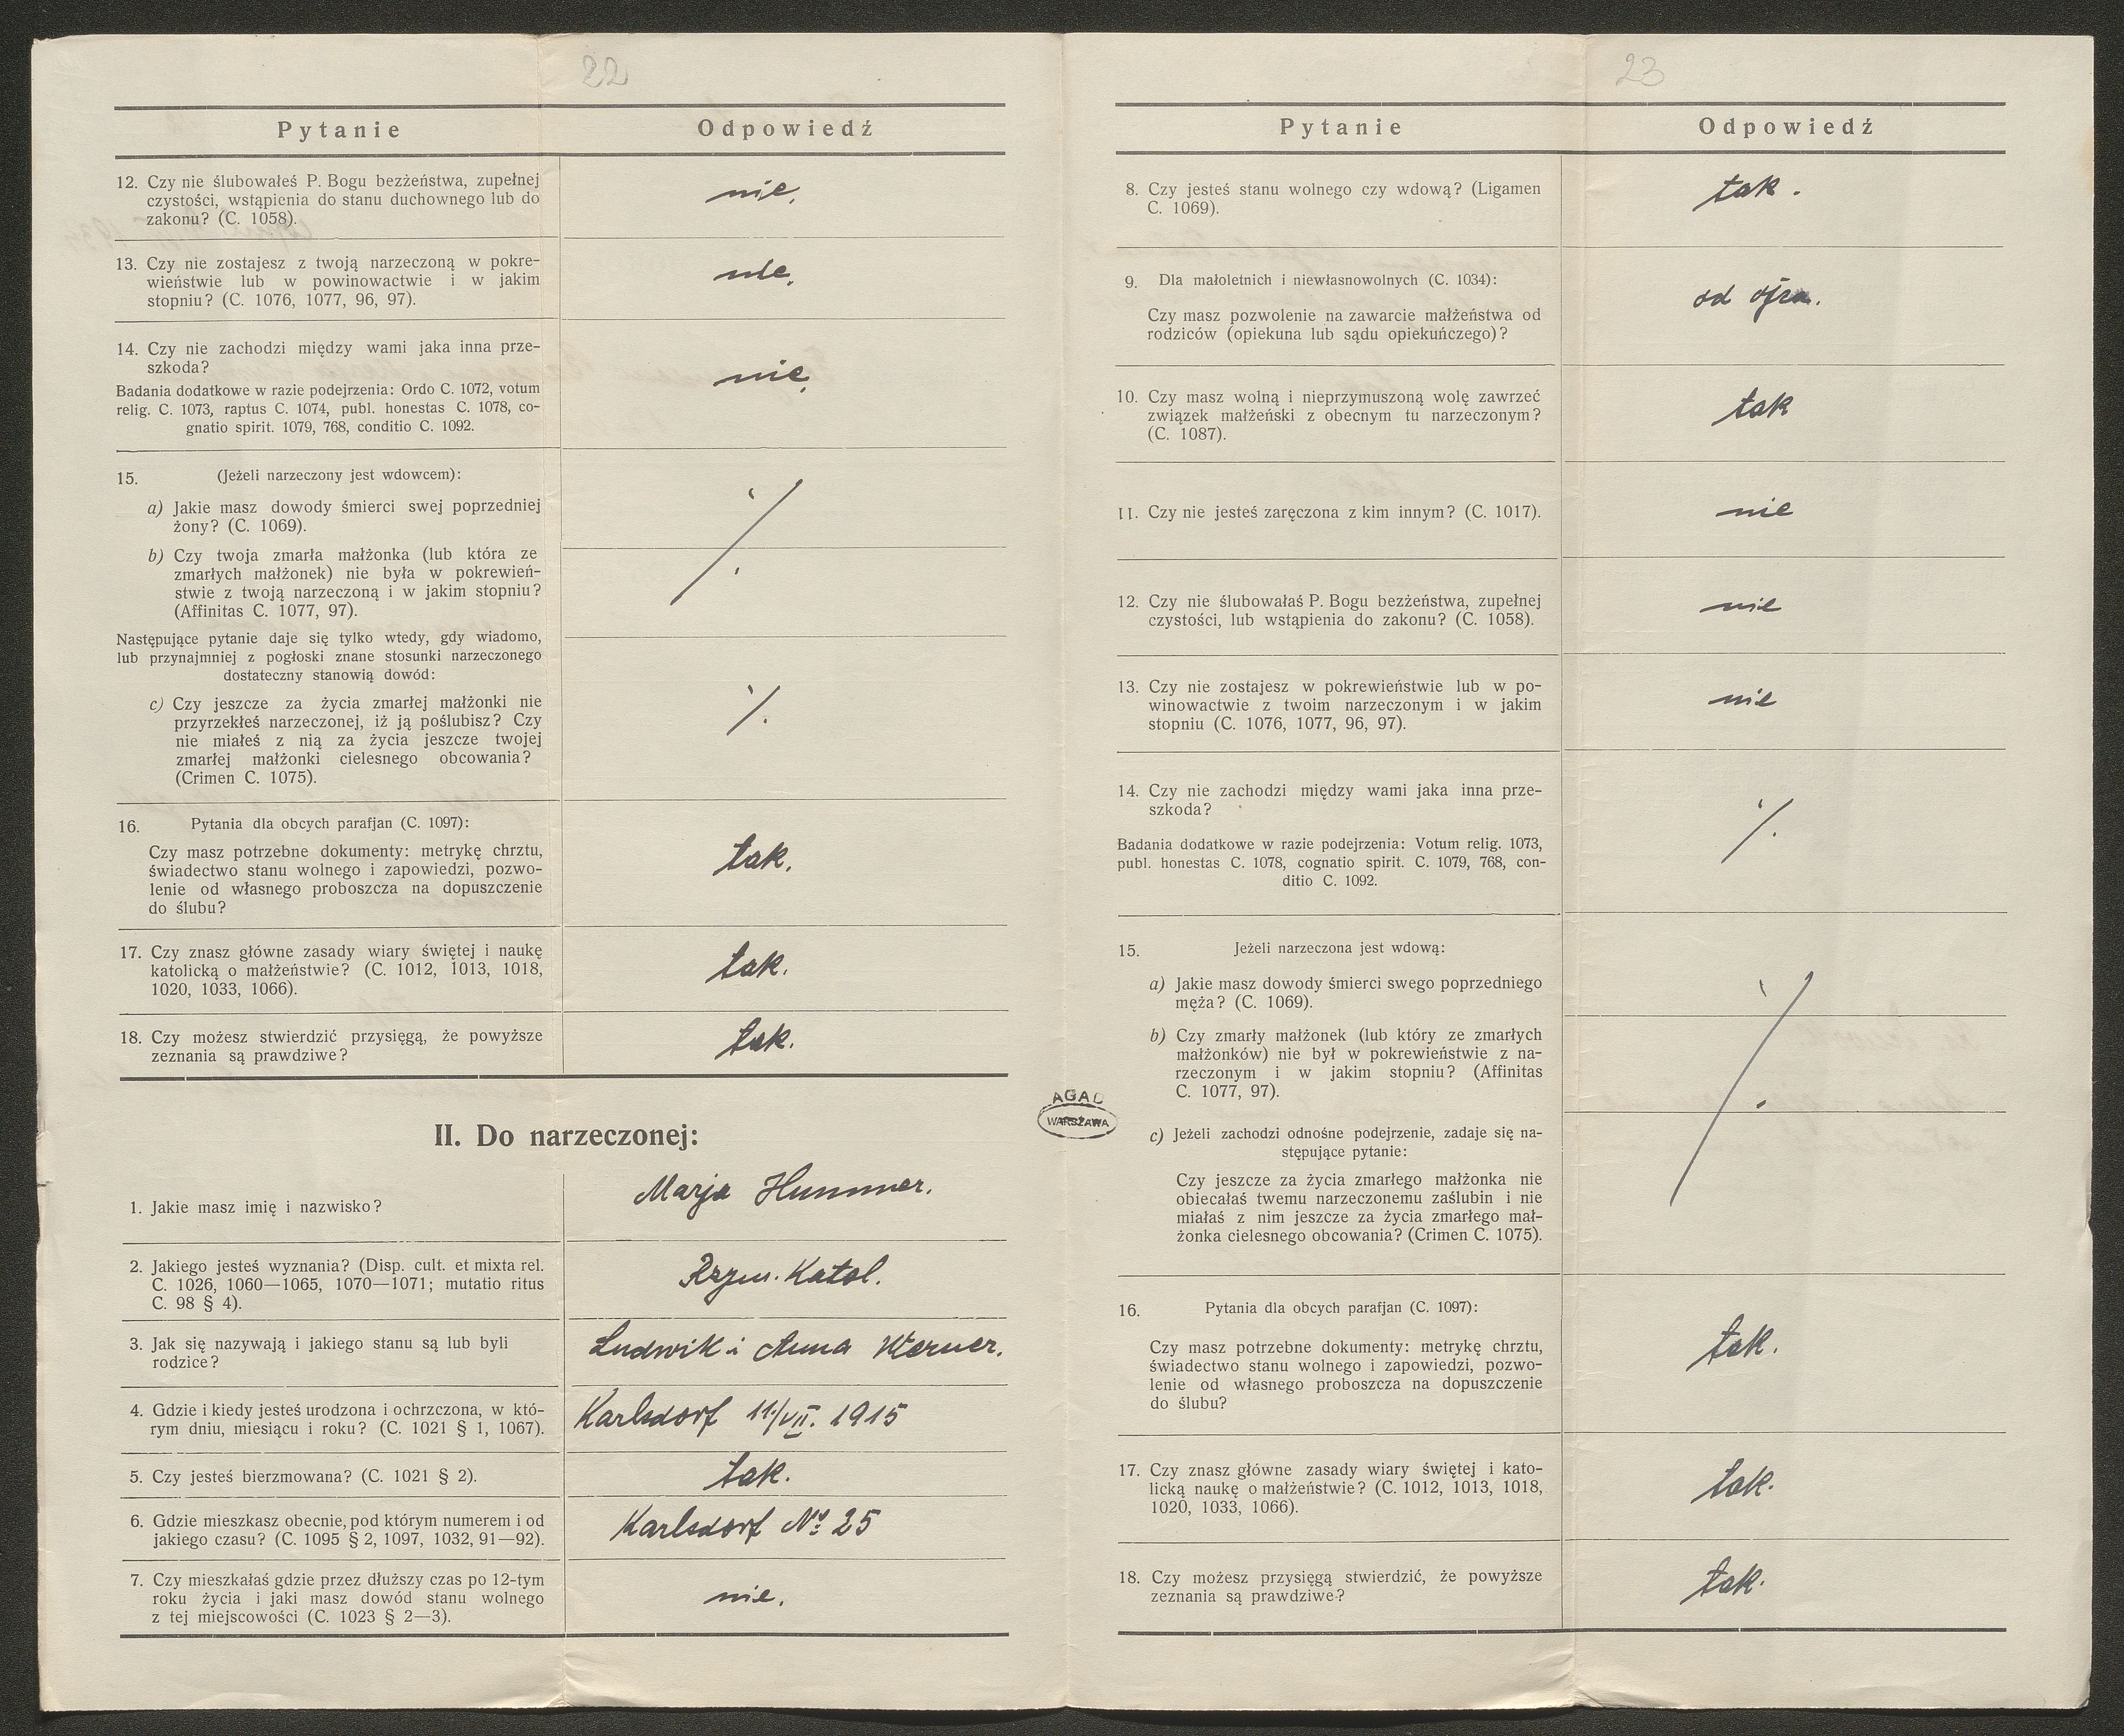 22
Pytanie Odpowiedź
12. Czy nie ślubowałeś P. Bogu bezżeństwa, zupełnej
czystości, wstąpienia do stanu duchownego lub do
zakonu? (C. 1058).
nie.
13. Czy nie zostajesz z twoją narzeczoną w pokre-
wieństwie lub w powinowactwie i w jakim
stopniu? (C. 1076, 1077, 96, 97).
nie.
14. Czy nie zachodzi między wami jaka inna prze-
szkoda?
Badania dodatkowe w razie podejrzenia: Ordo C. 1072, votum
relig. C. 1073, raptus C. 1074, publ. honestas C. 1078, co-
gnatio spirit. 1079, 768, conditio C. 1092.
nie.
15. (Jeżeli narzeczony jest wdowcem):
a) Jakie masz dowody śmierci swej poprzedniej
żony? (C. 1069).
b) Czy twoja zmarła małżonka (lub która ze
zmarłych małżonek) nie była w pokrewień-
stwie z twoją narzeczoną i w jakim stopniu?
(Affinitas C. 1077, 97).
Następujące pytanie daje się tylko wtedy, gdy wiadomo,
lub przynajmniej z pogłoski znane stosunki narzeczonego
dostateczny stanowią dowód:
c) Czy jeszcze za życia zmarłej małżonki nie
przyrzekłeś narzeczonej, iż ją poślubisz? Czy
nie miałeś z nią za życia jeszcze twojej
zmarłej małżonki cielesnego obcowania?
(Crimen C. 1075).
16. Pytania dla obcych parafjan (C. 1097):
Czy masz potrzebne dokumenty: metrykę chrztu,
świadectwo stanu wolnego i zapowiedzi, pozwo-
lenie od własnego proboszcza na dopuszczenie
do ślubu?
tak.
17. Czy znasz główne zasady wiary świętej i naukę
katolicką o małżeństwie? (C. 1012, 1013, 1018,
1020, 1033, 1066).
tak.
18. Czy możesz stwierdzić przysięgą, że powyższe
zeznania są prawdziwe?
tak.
II. Do narzeczonej:
1. Jakie masz imię i nazwisko?
Marja Hummer.
2. Jakiego jesteś wyznania? (Disp. cult. et mixta rel.
C. 1026, 1060—1065, 1070—1071; mutatio ritus
C. 98 § 4).
Rzym. Katol.
3. Jak się nazywają i jakiego stanu są lub byli
rodzice?
Ludwik i Anna Werner.
4. Gdzie i kiedy jesteś urodzona i ochrzczona, w któ-
rym dniu, miesiącu i roku? (C. 1021 § 1, 1067).
Karlsdorf 11./VII. 1915
5. Czy jesteś bierzmowana? (C. 1021 § 2).
tak.
6. Gdzie mieszkasz obecnie, pod którym numerem i od
jakiego czasu? (C. 1095 § 2, 1097, 1032, 91—92).
Karlsdorf No 25
7. Czy mieszkałaś gdzie przez dłuższy czas po 12-tym
roku życia i jaki masz dowód stanu wolnego
z tej miejscowości (C. 1023 § 2—3).
nie.
AGAD
WARSZAWA
23
Pytanie Odpowiedź
8. Czy jesteś stanu wolnego czy wdową? (Ligamen
C. 1069).
tak.
9. Dla małoletnich i niewłasnowolnych (C. 1034):
Czy masz pozwolenie na zawarcie małżeństwa od
rodziców (opiekuna lub sądu opiekuńczego)?
od ojca.
10. Czy masz wolną i nieprzymuszoną wolę zawrzeć
związek małżeński z obecnym tu narzeczonym?
(C. 1087).
tak
11. Czy nie jesteś zaręczona z kim innym? (C. 1017).
nie
12. Czy nie ślubowałaś P. Bogu bezżeństwa, zupełnej
czystości, lub wstąpienia do zakonu? (C. 1058).
nie
13. Czy nie zostajesz w pokrewieństwie lub w po-
winowactwie z twoim narzeczonym i w jakim
stopniu (C. 1076, 1077, 96, 97).
nie
14. Czy nie zachodzi między wami jaka inna prze-
szkoda?
Badania dodatkowe w razie podejrzenia: Votum relig. 1073,
publ. honestas C. 1078, cognatio spirit. C. 1079, 768, con-
ditio C. 1092.
15. Jeżeli narzeczona jest wdową:
a) Jakie masz dowody śmierci swego poprzedniego
męża? (C. 1069).
b) Czy zmarły małżonek (lub który ze zmarłych
małżonków) nie był w pokrewieństwie z na-
rzeczonym i w jakim stopniu? (Affinitas
C. 1077, 97).
c) Jeżeli zachodzi odnośne podejrzenie, zadaje się na-
stępujące pytanie:
Czy jeszcze za życia zmarłego małżonka nie
obiecałaś twemu narzeczonemu zaślubin i nie
miałaś z nim jeszcze za życia zmarłego mał-
żonka cielesnego obcowania? (Crimen C. 1075).
16. Pytania dla obcych parafjan (C. 1097):
Czy masz potrzebne dokumenty: metrykę chrztu,
świadectwo stanu wolnego i zapowiedzi, pozwo-
lenie od własnego proboszcza na dopuszczenie
do ślubu?
tak.
17. Czy znasz główne zasady wiary świętej i kato-
licką naukę o małżeństwie? (C. 1012, 1013, 1018,
1020, 1033, 1066).
tak.
18. Czy możesz przysięgą stwierdzić, że powyższe
zeznania są prawdziwe?
tak.